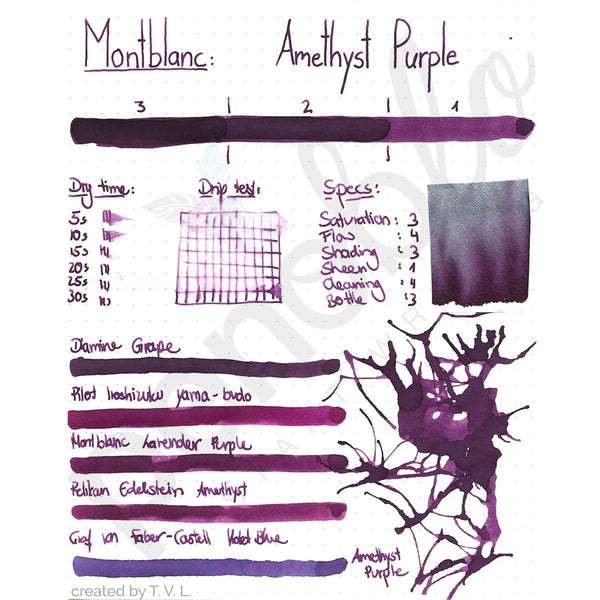 Montblanc: Amethyst Purple
3 2 1
Dry time: Drip test: Specs:
5s
10s
15s
20s
25s
30s
Saturation : 3
Flow : 4
Shading : 3
Sheen : 1
Cleaning : 4
Bottle : 3
Diamine Grape
Pilot Iroshizuku yama-budo
Montblanc Lavender Purple
Pelikan Edelstein Amethyst
Graf von Faber-Castell Violet Blue
Amethyst
Purple
created by T. V. L.